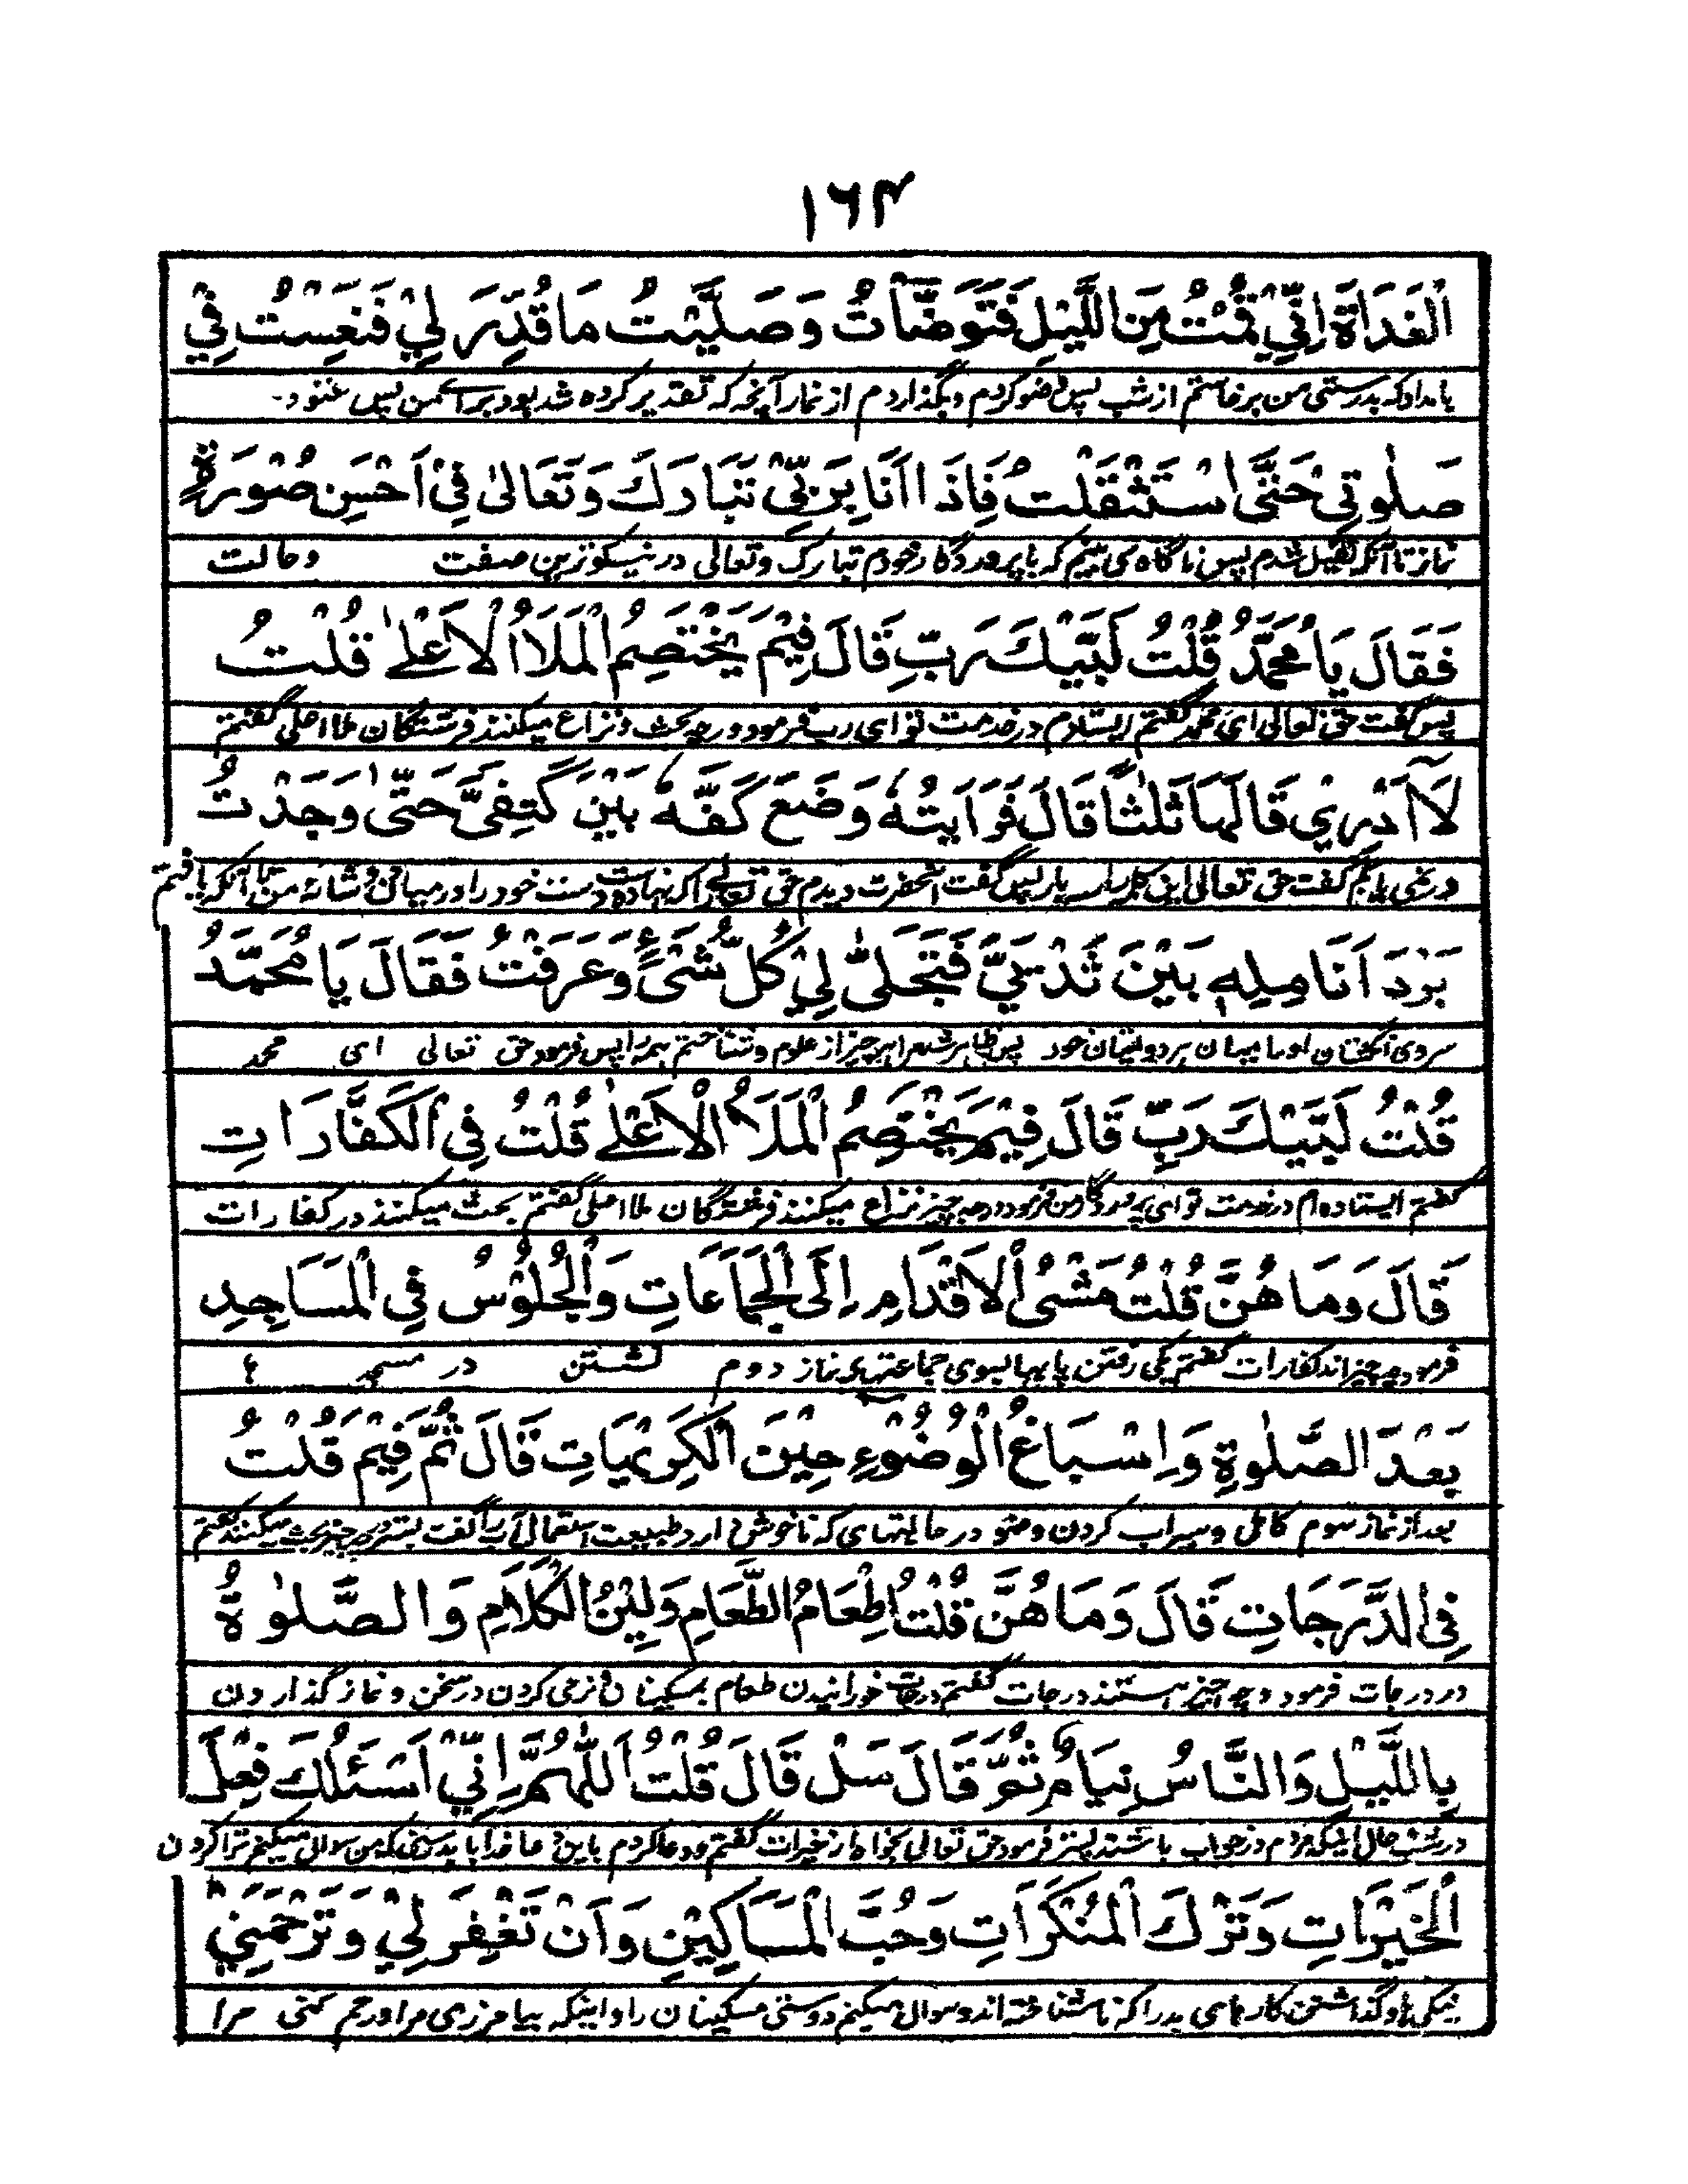 ۱۶۴
الْغَدَاةَ اِنِّيْ قُمْتُ مِنَ اللَّيْلِ فَتَوَضَّأْتُ وَصَلَّيْتُ مَا قُدِّرَ لِيْ فَنَعِسْتُ فِيْ
بامداد که بدرستی من برخاستم از شب پس وضو کردم و بگذاردم از نماز آنچه که تقدیر کرده شد بود برای من پس غنود
صَلٰوتِيْ حَتَّى اسْتَثْقَلْتُ فَاِذَا اَنَا بِرَبِّيْ تَبَارَكَ وَتَعَالٰى فِيْ اَحْسَنِ صُوْرَةٍ
نماز تا آنکه ثقیل شدم پس ناگاه می بینم که با پروردگار خودم تبارک وتعالی در نیکوترین صفت وحالت
فَقَالَ يَا مُحَمَّدُ قُلْتُ لَبَّيْكَ رَبِّ قَالَ فِيْمَ يَخْتَصِمُ الْمَلَاُ الْاَعْلٰى قُلْتُ
پس گفت حق تعالی ای محمد گفتم ایستادم در خدمت تو ای رب فرمود در چه بحث ونزاع میکنند فرشتگان ملا اعلی گفتم
لَا اَدْرِيْ قَالَهَا ثَلٰثًا قَالَ فَرَاَيْتُهٗ وَضَعَ كَفَّهٗ بَيْنَ كَتِفَيَّ حَتّٰى وَجَدْتُ
در نمی یابم گفت حق تعالی این کلمه را سه بار پس گفت آنحضرت دیدم حق تعالی را که نهاده است دست خود را در میان دو شانهٔ من تا آنکه یافتم
بَرْدَ اَنَامِلِهٖ بَيْنَ ثَدْيَيَّ فَتَجَلّٰى لِيْ كُلُّ شَيْءٍ وَعَرَفْتُ فَقَالَ يَا مُحَمَّدُ
سردی انگشتان او را میان هر دو پستان خود پس ظاهر شد مرا هر چیز از علوم وشناختم همه را پس فرمود حق تعالی ای محمد
قُلْتُ لَبَّيْكَ رَبِّ قَالَ فِيْمَ يَخْتَصِمُ الْمَلَاُ الْاَعْلٰى قُلْتُ فِي الْكَفَّارَاتِ
گفتم ایستاده ام در خدمت تو ای پروردگار من فرمود در چه چیز نزاع میکنند فرشتگان ملا اعلی گفتم بحث میکنند در کفارات
قَالَ وَمَا هُنَّ قُلْتُ مَشْيُ الْاَقْدَامِ اِلَى الْجَمَاعَاتِ وَالْجُلُوْسُ فِي الْمَسَاجِدِ
فرمود چه چیز اند کفارات گفتم یکی رفتن پایها بسوی جماعتهای نماز دوم نشستن در مسجد
بَعْدَ الصَّلٰوةِ وَاِسْبَاغُ الْوُضُوْءِ حِيْنَ الْكَرِيْهَاتِ قَالَ ثُمَّ فِيْمَ قُلْتُ
بعد از نماز سوم کامل وسیراب کردن وضو در حالتهای که ناخوش دارد طبیعت استعمال آب را گفت پستر در چه چیز بحث میکنند گفتم
فِي الدَّرَجَاتِ قَالَ وَمَا هُنَّ قُلْتُ اِطْعَامُ الطَّعَامِ وَلِيْنُ الْكَلَامِ وَالصَّلٰوةُ
در درجات فرمود و چه چیز هستند درجات گفتم درجات خورانیدن طعام بمسکینان و نرمی کردن در سخن ونماز گذاردن
بِاللَّيْلِ وَالنَّاسُ نِيَامٌ ثُمَّ قَالَ سَلْ قَالَ قُلْتُ اَللّٰهُمَّ اِنِّيْ اَسْئَلُكَ فِعْلَ
در شب حال اینکه مردم در خواب باشند پستر فرمود حق تعالی بخواه از خیرات گفتم ودعا کردم باین دعا خدایا بدرستیکه من سوال میکنم ترا کردن
الْخَيْرَاتِ وَتَرْكَ الْمُنْكَرَاتِ وَحُبَّ الْمَسَاكِيْنِ وَاَنْ تَغْفِرَ لِيْ وَتَرْحَمَنِيْ
نیکی ها وگذاشتن کارهای بد را که ناشناخته اند وسوال میکنم دوستی مسکینان را واینکه بیامرزی مرا ورحم کنی مرا